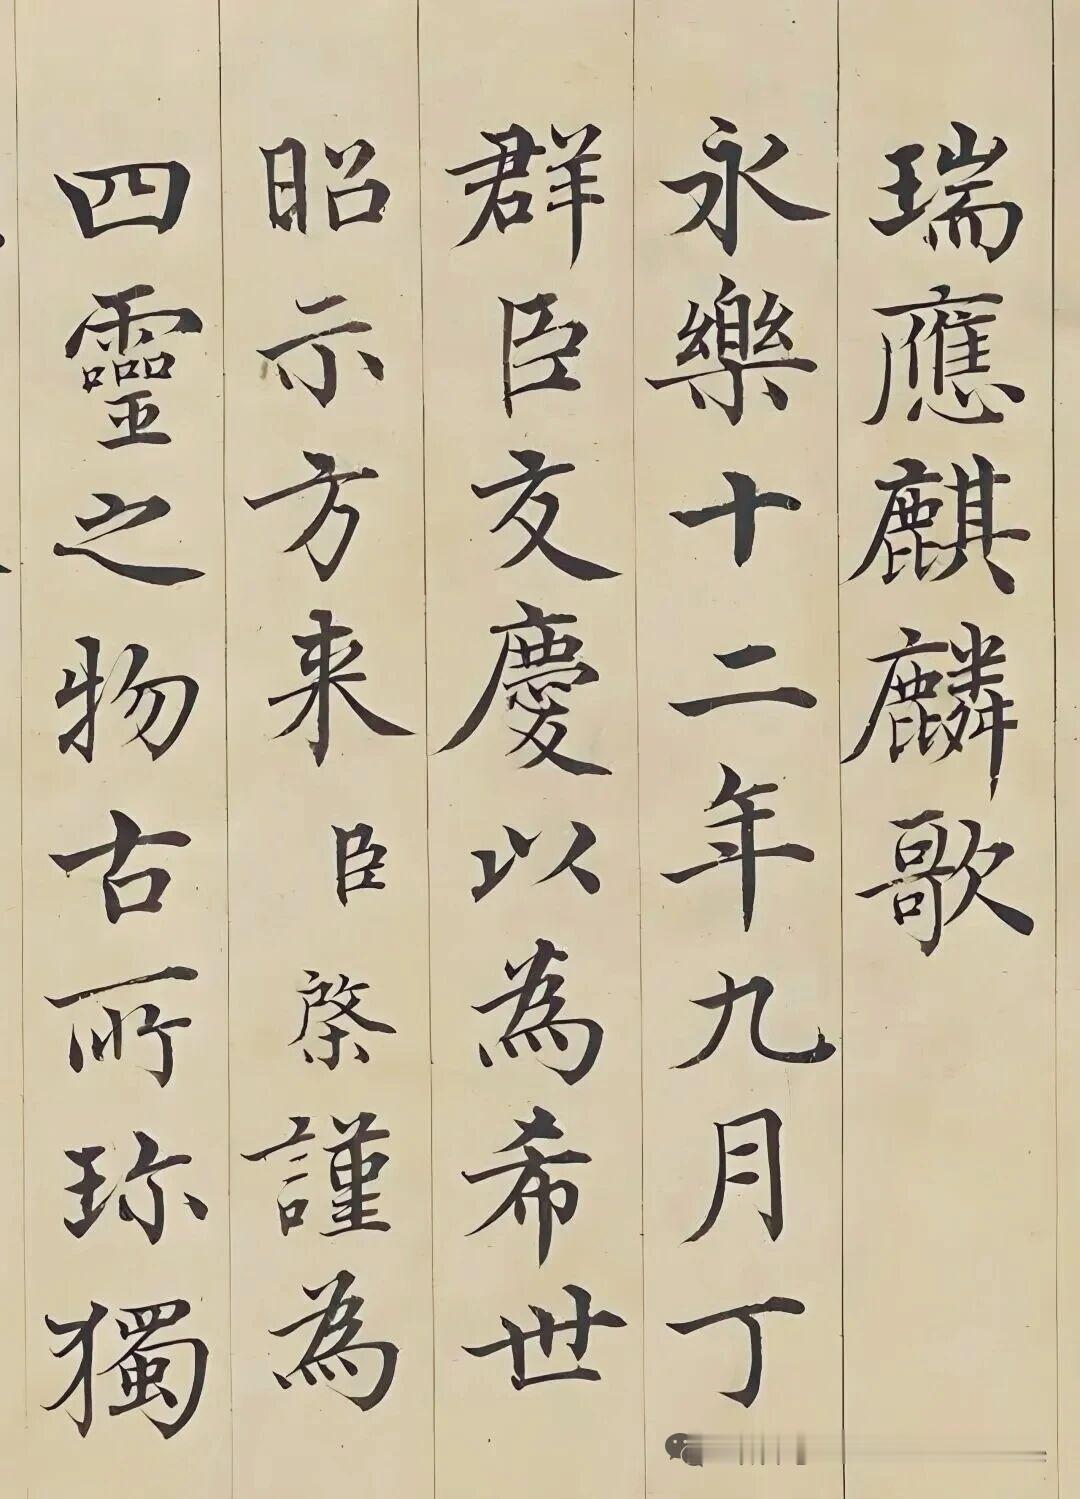 瑞應麒麟歌
永樂十二年九月丁
群臣交慶以為希世
昭示方来臣棨謹為
四靈之物古所珎獨